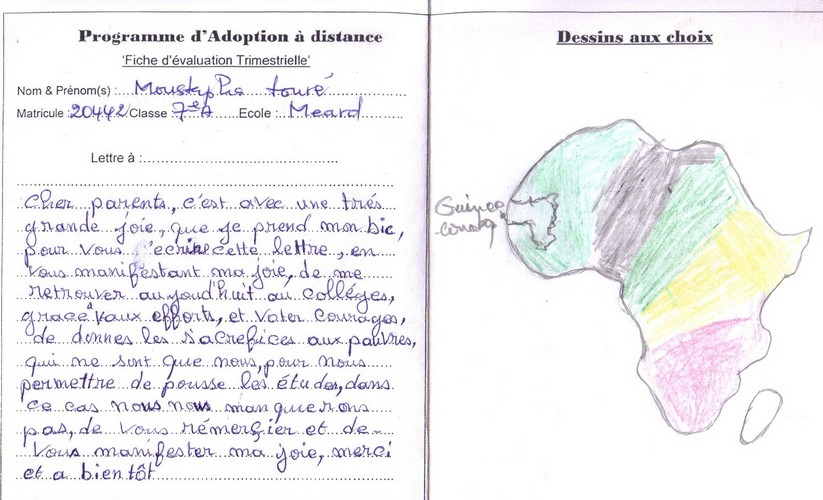 Programme d'Adoption à distance
'Fiche d'évaluation Trimestrielle'
Nom & Prénom(s) :.... Moustapha touré
Matricule :20442 Classe :7eA......Ecole :..Meard
Lettre à :
Cher parents, c'est avec une très
grande joie, que je prend mon bic,
pour vous ecrire cette lettre, en
vous manifestant ma joie, de me
retrouver aujoud'huit au colléges,
grace à vaux efforts, et voter courages,
de donnes les sacrefices aux pauvres,
qui ne sont que nous, pour nous
permettre de pousse les études, dans
ce cas nous nous manquerons
pas, de vous rémerçier et de
vous manifester ma joie, merci
et a bientôt
Dessins aux choix
Guinee
conakry